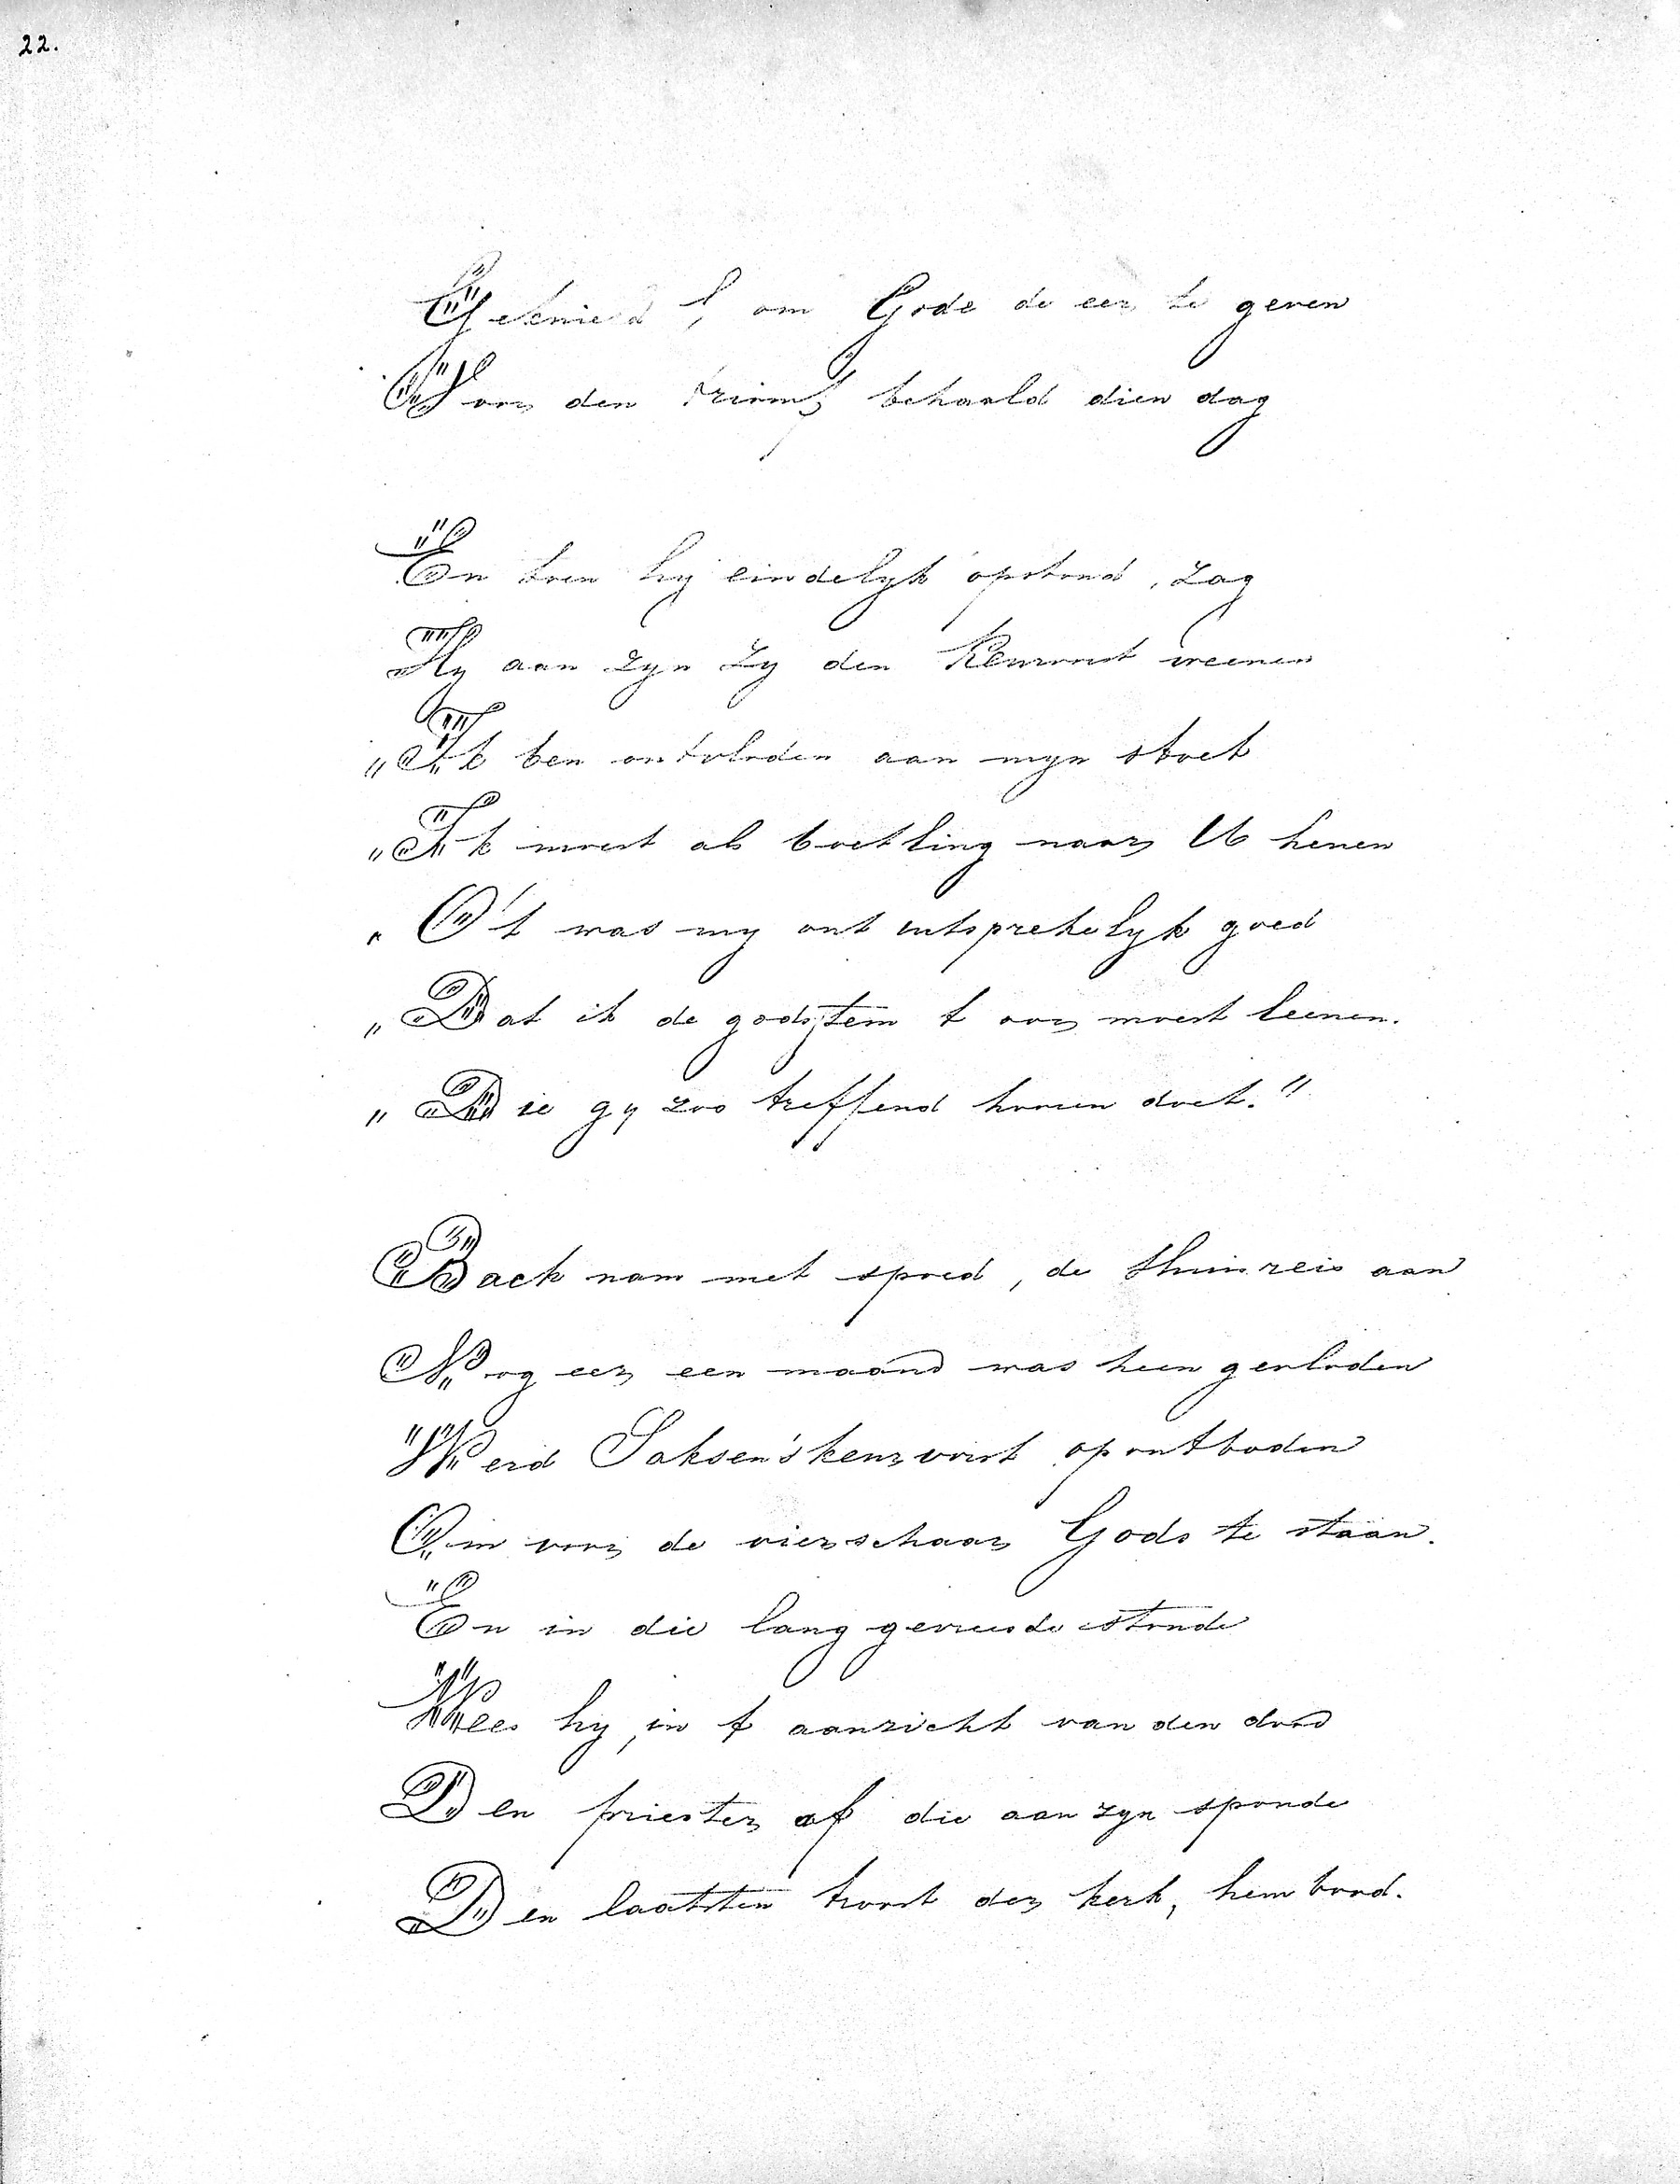 22.
Geknield, om Gode de eer te geven
Voor den triomf, behaald dien dag
En toen hy eindelyk opstond, zag
Hy aan zyn zy den Keurvorst weenen
„Ik ben ontvloden aan myn stoet
„Ik moest als boetling naar U henen
„O 't was my ont uitsprekelyk goed
„Dat ik de godsstem t oor moest leenen.
„Die gy zoo treffend hooren doet."
Bach nam met spoed, de thuisreis aan
Nog eer een maand was heen gevloden
Werd Saksen's keurvorst opontboden
Om voor de vierschaar Gods te staan.
En in die lang gevreesde stonde
Wees hy, in t aanzicht van den dood
Den priester af die aan zyn sponde
Den laatsten troost der kerk, hem bood.